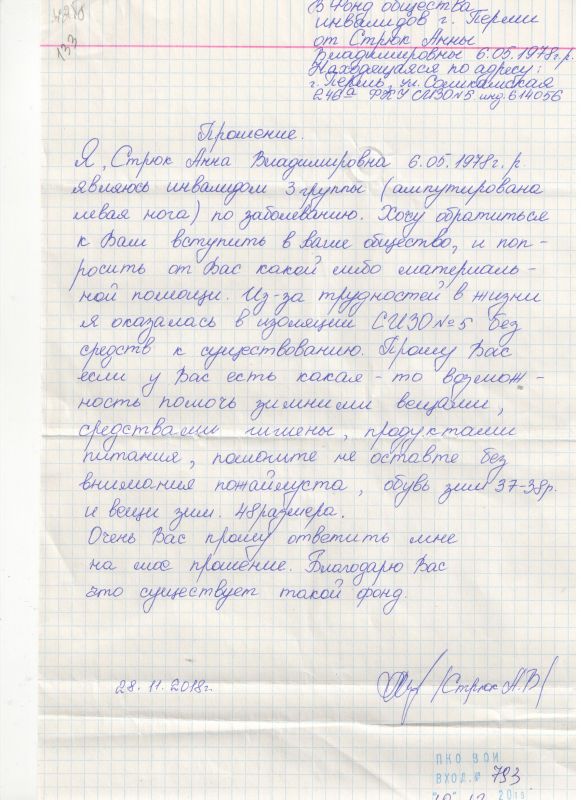 4285
133
В Фонд общества
инвалидов г. Перми
от Стрюк Анны
Владимировны 6.05.1978г.р.
Находящаяся по адресу:
г. Пермь, ул. Соликамская
246а ФКУ СИЗО №5 инд. 614056
Прошение.
Я, Стрюк Анна Владимировна 6.05.1978г. р.
являюсь инвалидом 3 группы (ампутирована
левая нога) по заболеванию. Хочу обратиться
к Вам вступить в ваше общество, и поп-
росить от Вас какой либо материаль-
ной помощи. Из-за трудностей в жизни
я оказалась в изоляции СИЗО №5 без
средств к существованию. Прошу Вас
если у Вас есть какая-то возмож-
ность помочь зимними вещами,
средствами гигиены, продуктами
питания, помогите не оставте без
внимания пожаймуста, обувь зим 37-38р.
и вещи зим. 48 размера.
Очень Вас прошу ответить мне
на мое прошение. Благодарю Вас
что существует такой фонд.
28.11.2018г.
/Стрюк А.В/
ПКО ВОИ
ВХОД.№ 793
12 20